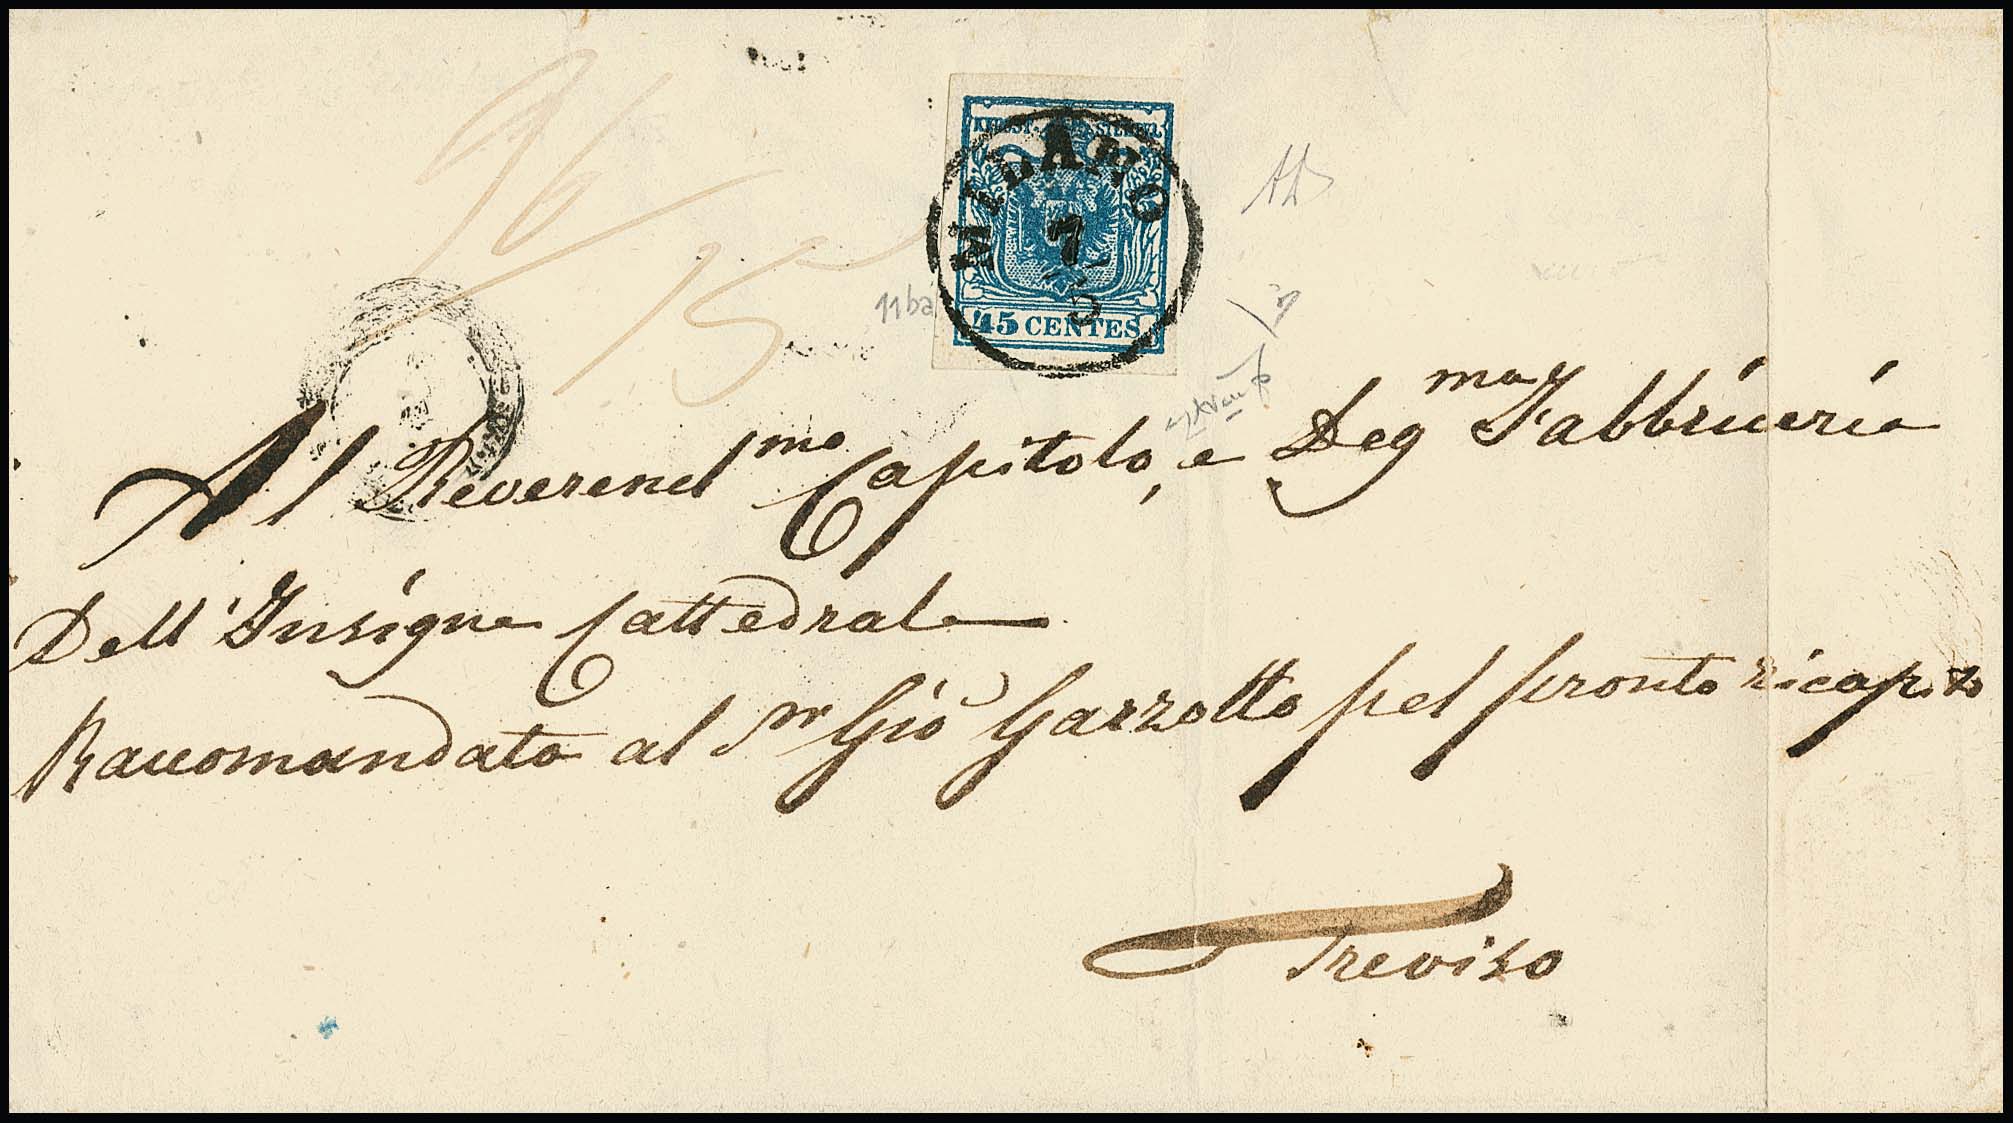 KKPOST-STEMPEL
MILANO
7
5
45 CENTES
11ba
15
Al Reverend.mo Capitolo, e Deg.ma Fabbriceria
Dell' Insigne Cattedrale
Raccomandato al Sr Gio Garzotto pel pronto ricapito
Treviso